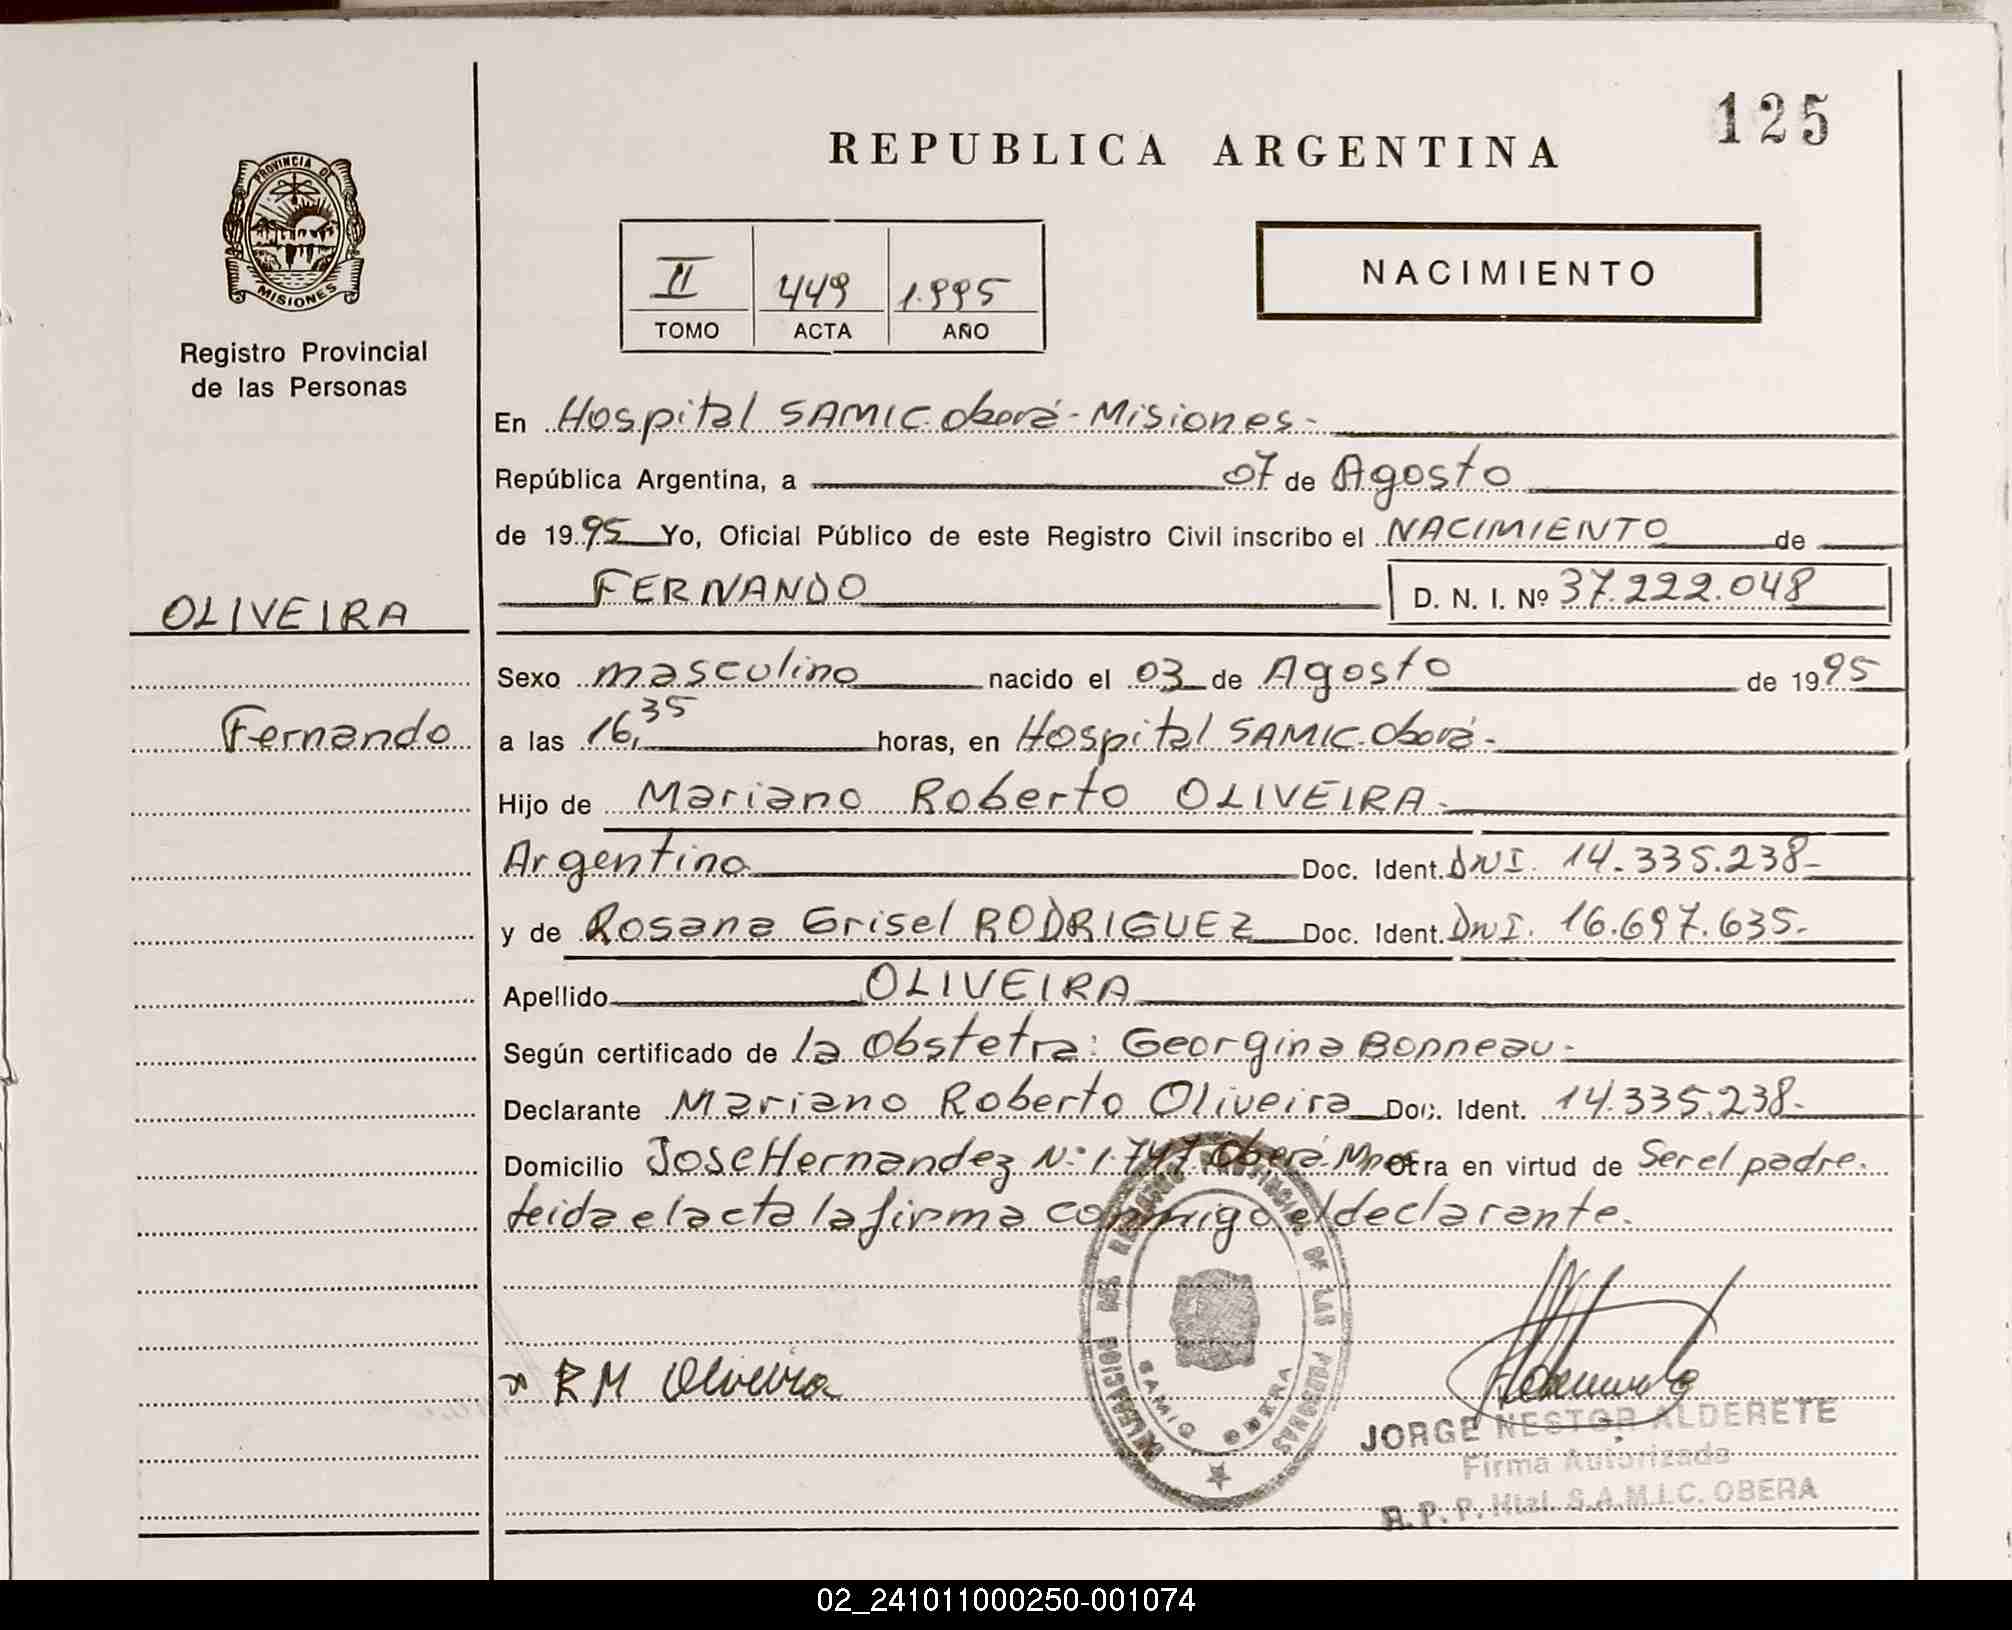 125
REPUBLICA ARGENTINA
PROVINCIA DE
MISIONES
Registro Provincial
de las Personas
II 449 1.995
TOMO ACTA AÑO
NACIMIENTO
En Hospital SAMIC. Oberá - Misiones -
República Argentina, a 07 de Agosto
de 1995 Yo, Oficial Público de este Registro Civil inscribo el NACIMIENTO de
FERNANDO D. N. I. Nº 37.222.048
OLIVEIRA
Sexo masculino nacido el 03 de Agosto de 1995
Fernando
a las 16,35 horas, en Hospital SAMIC. Oberá -
Hijo de Mariano Roberto OLIVEIRA -
Argentino Doc. Ident. DNI. 14.335.238-
y de Rosana Grisel RODRIGUEZ Doc. Ident. DNI. 16.697.635.-
Apellido OLIVEIRA
Según certificado de la Obstetra: Georgina Bonneau -
Declarante Mariano Roberto Oliveira Doc. Ident. 14.335.238-
Domicilio Jose Hernandez Nº 1.747 Oberá Mnes otra en virtud de Ser el padre.
leida el acta la firma conmigo el declarante.
DELEGACION DEL REGISTRO PROVINCIAL DE LAS PERSONAS
SAMIC OBERA
RM Oliveira
JORGE NESTOR ALDERETE
Firma Autorizada
R. P. P. Htal. S.A.M.I.C. OBERA
02_241011000250-001074